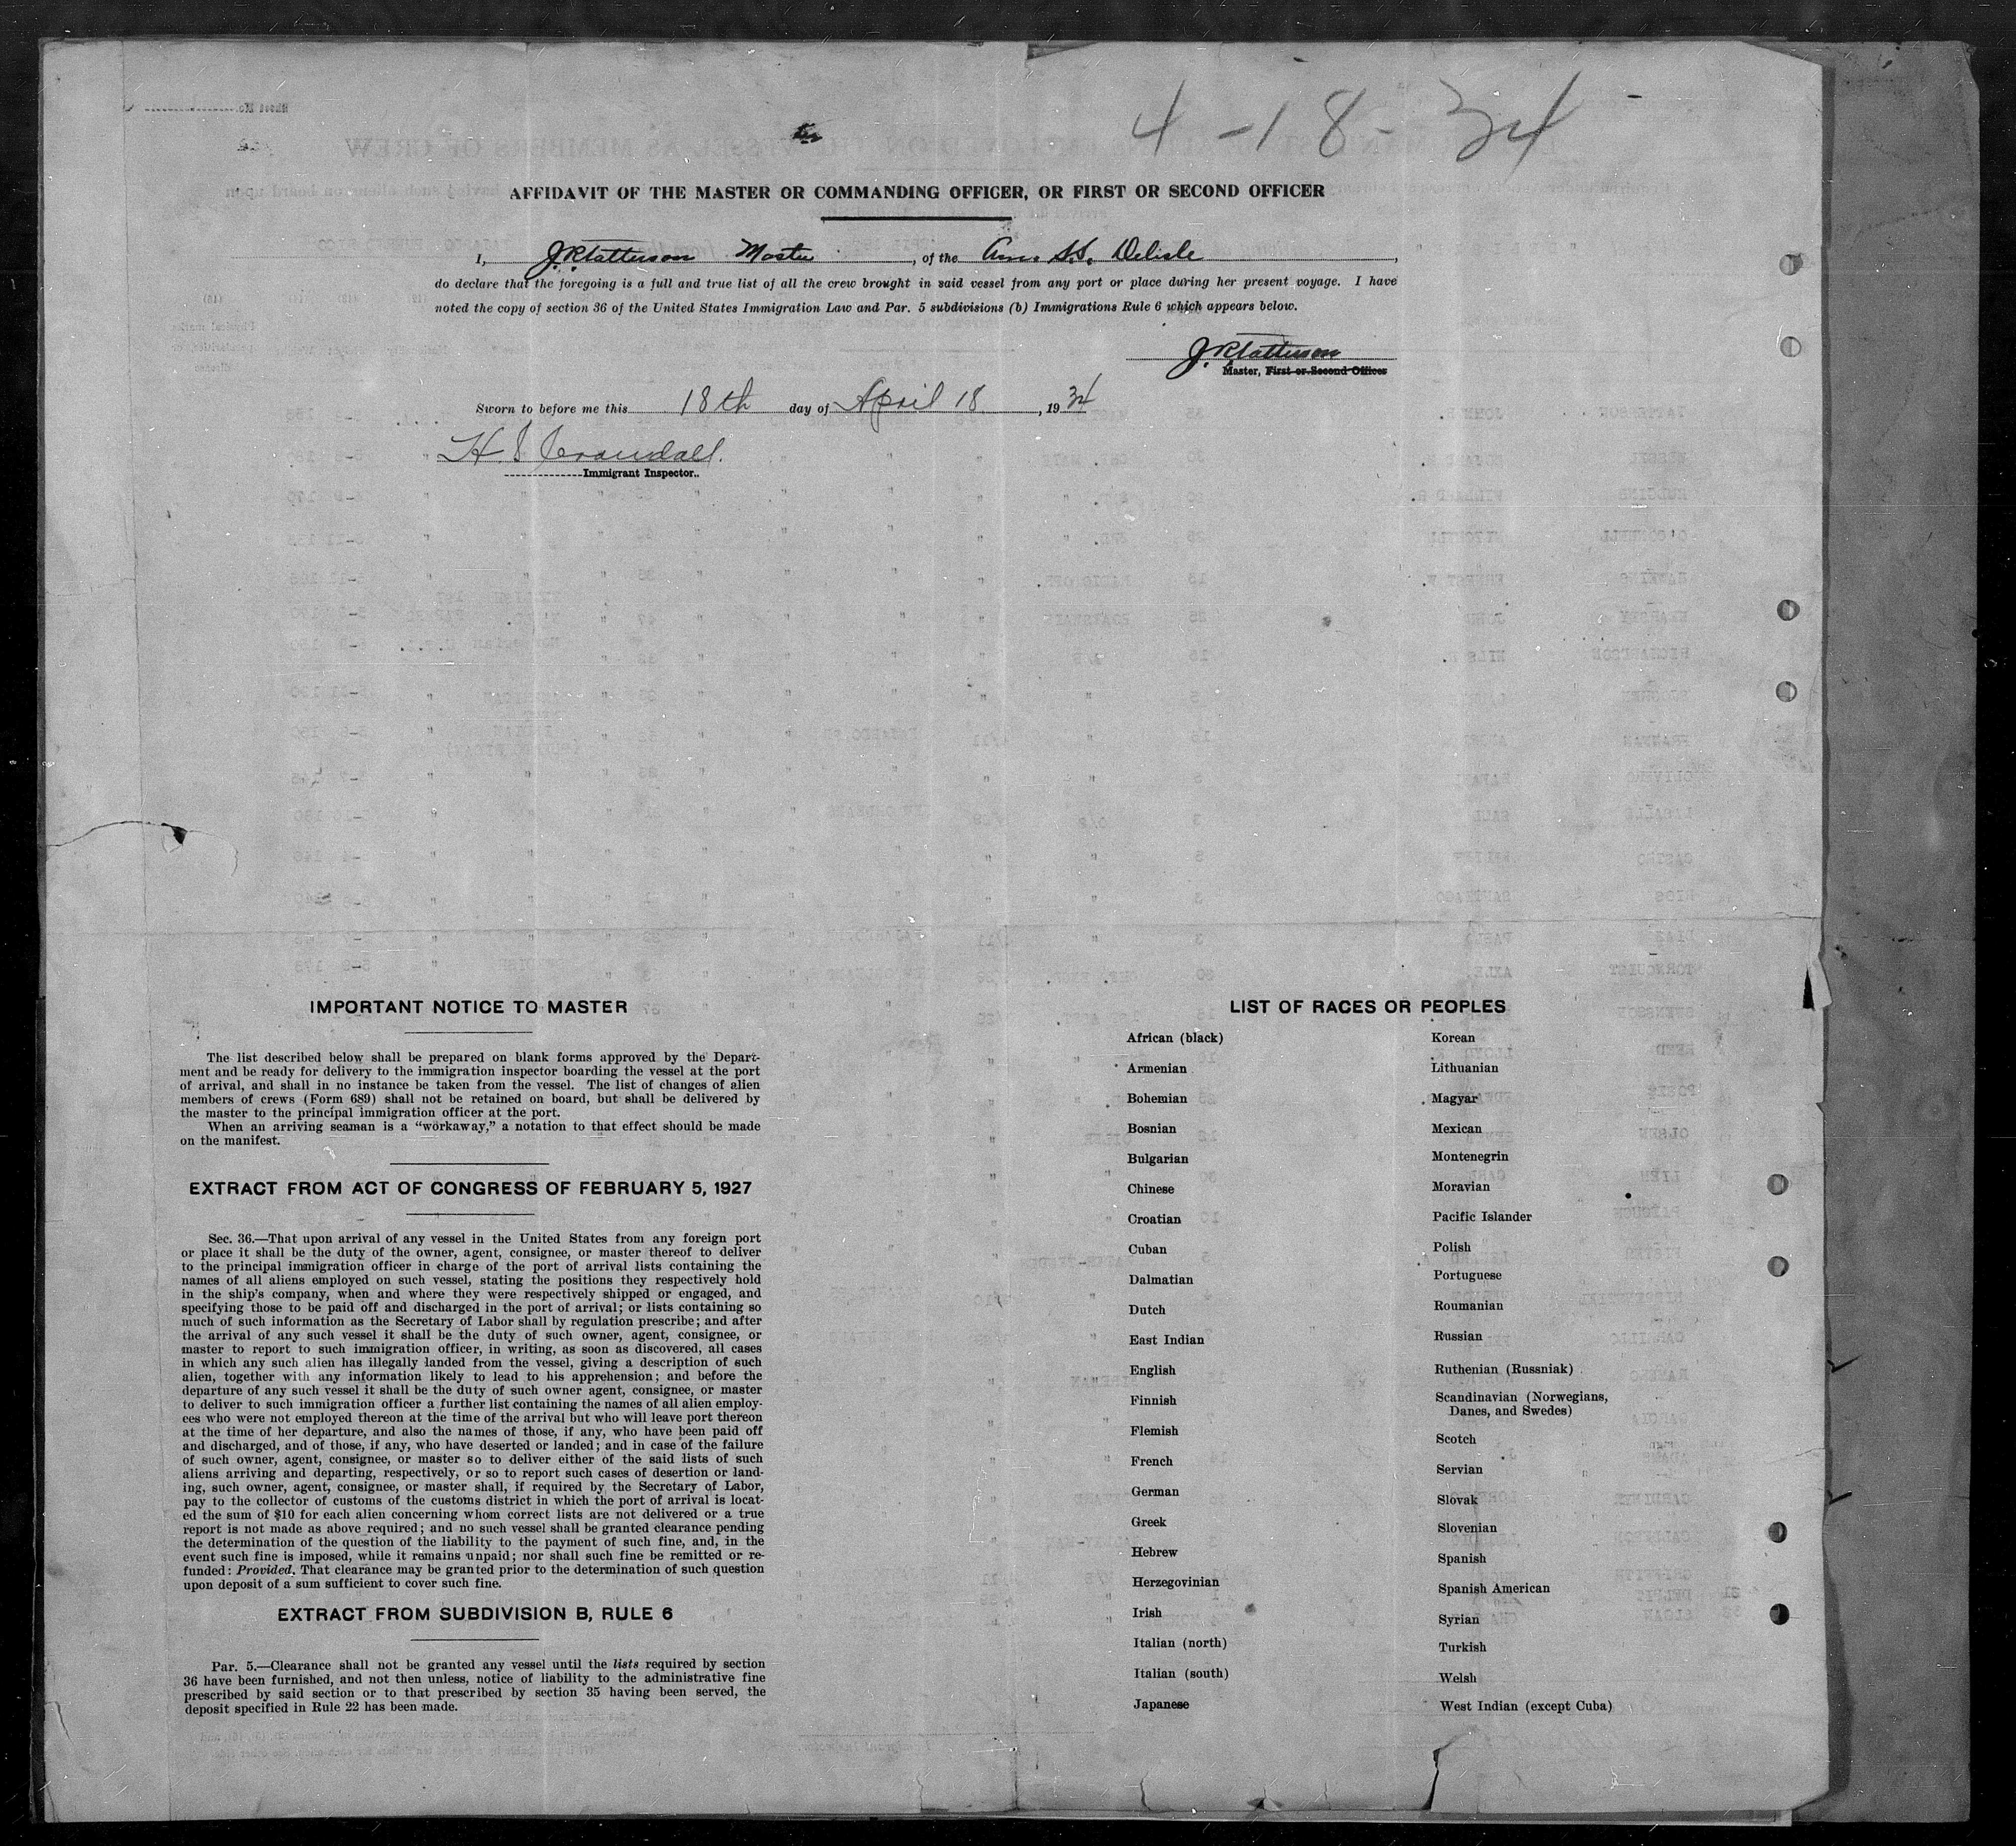 4-18-34
AFFIDAVIT OF THE MASTER OR COMMANDING OFFICER, OR FIRST OR SECOND OFFICER
I, J.R. Tatterson Master, of the Am. S.S. Delisle,
do declare that the foregoing is a full and true list of all the crew brought in said vessel from any port or place during her present voyage. I have
noted the copy of section 36 of the United States Immigration Law and Par. 5 subdivisions (b) Immigrations Rule 6 which appears below.
J.R. Tatterson
Master, First or Second Officer
Sworn to before me this 18th day of April 18, 1934
H. S. Crandall.
Immigrant Inspector.
IMPORTANT NOTICE TO MASTER
The list described below shall be prepared on blank forms approved by the Depart-
ment and be ready for delivery to the immigration inspector boarding the vessel at the port
of arrival, and shall in no instance be taken from the vessel. The list of changes of alien
members of crews (Form 689) shall not be retained on board, but shall be delivered by
the master to the principal immigration officer at the port.
When an arriving seaman is a “workaway,” a notation to that effect should be made
on the manifest.
EXTRACT FROM ACT OF CONGRESS OF FEBRUARY 5, 1927
Sec. 36.—That upon arrival of any vessel in the United States from any foreign port
or place it shall be the duty of the owner, agent, consignee, or master thereof to deliver
to the principal immigration officer in charge of the port of arrival lists containing the
names of all aliens employed on such vessel, stating the positions they respectively hold
in the ship's company, when and where they were respectively shipped or engaged, and
specifying those to be paid off and discharged in the port of arrival; or lists containing so
much of such information as the Secretary of Labor shall by regulation prescribe; and after
the arrival of any such vessel it shall be the duty of such owner, agent, consignee, or
master to report to such immigration officer, in writing, as soon as discovered, all cases
in which any such alien has illegally landed from the vessel, giving a description of such
alien, together with any information likely to lead to his apprehension; and before the
departure of any such vessel it shall be the duty of such owner agent, consignee, or master
to deliver to such immigration officer a further list containing the names of all alien employ-
ees who were not employed thereon at the time of the arrival but who will leave port thereon
at the time of her departure, and also the names of those, if any, who have been paid off
and discharged, and of those, if any, who have deserted or landed; and in case of the failure
of such owner, agent, consignee, or master so to deliver either of the said lists of such
aliens arriving and departing, respectively, or so to report such cases of desertion or land-
ing, such owner, agent, consignee, or master shall, if required by the Secretary of Labor,
pay to the collector of customs of the customs district in which the port of arrival is locat-
ed the sum of $10 for each alien concerning whom correct lists are not delivered or a true
report is not made as above required; and no such vessel shall be granted clearance pending
the determination of the question of the liability to the payment of such fine, and, in the
event such fine is imposed, while it remains unpaid; nor shall such fine be remitted or re-
funded: Provided, That clearance may be granted prior to the determination of such question
upon deposit of a sum sufficient to cover such fine.
EXTRACT FROM SUBDIVISION B, RULE 6
Par. 5.—Clearance shall not be granted any vessel until the lists required by section
36 have been furnished, and not then unless, notice of liability to the administrative fine
prescribed by said section or to that prescribed by section 35 having been served, the
deposit specified in Rule 22 has been made.
LIST OF RACES OR PEOPLES
African (black)
Armenian
Bohemian
Bosnian
Bulgarian
Chinese
Croatian
Cuban
Dalmatian
Dutch
East Indian
English
Finnish
Flemish
French
German
Greek
Hebrew
Herzegovinian
Irish
Italian (north)
Italian (south)
Japanese
Korean
Lithuanian
Magyar
Mexican
Montenegrin
Moravian
Pacific Islander
Polish
Portuguese
Roumanian
Russian
Ruthenian (Russniak)
Scandinavian (Norwegians,
Danes, and Swedes)
Scotch
Servian
Slovak
Slovenian
Spanish
Spanish American
Syrian
Turkish
Welsh
West Indian (except Cuba)